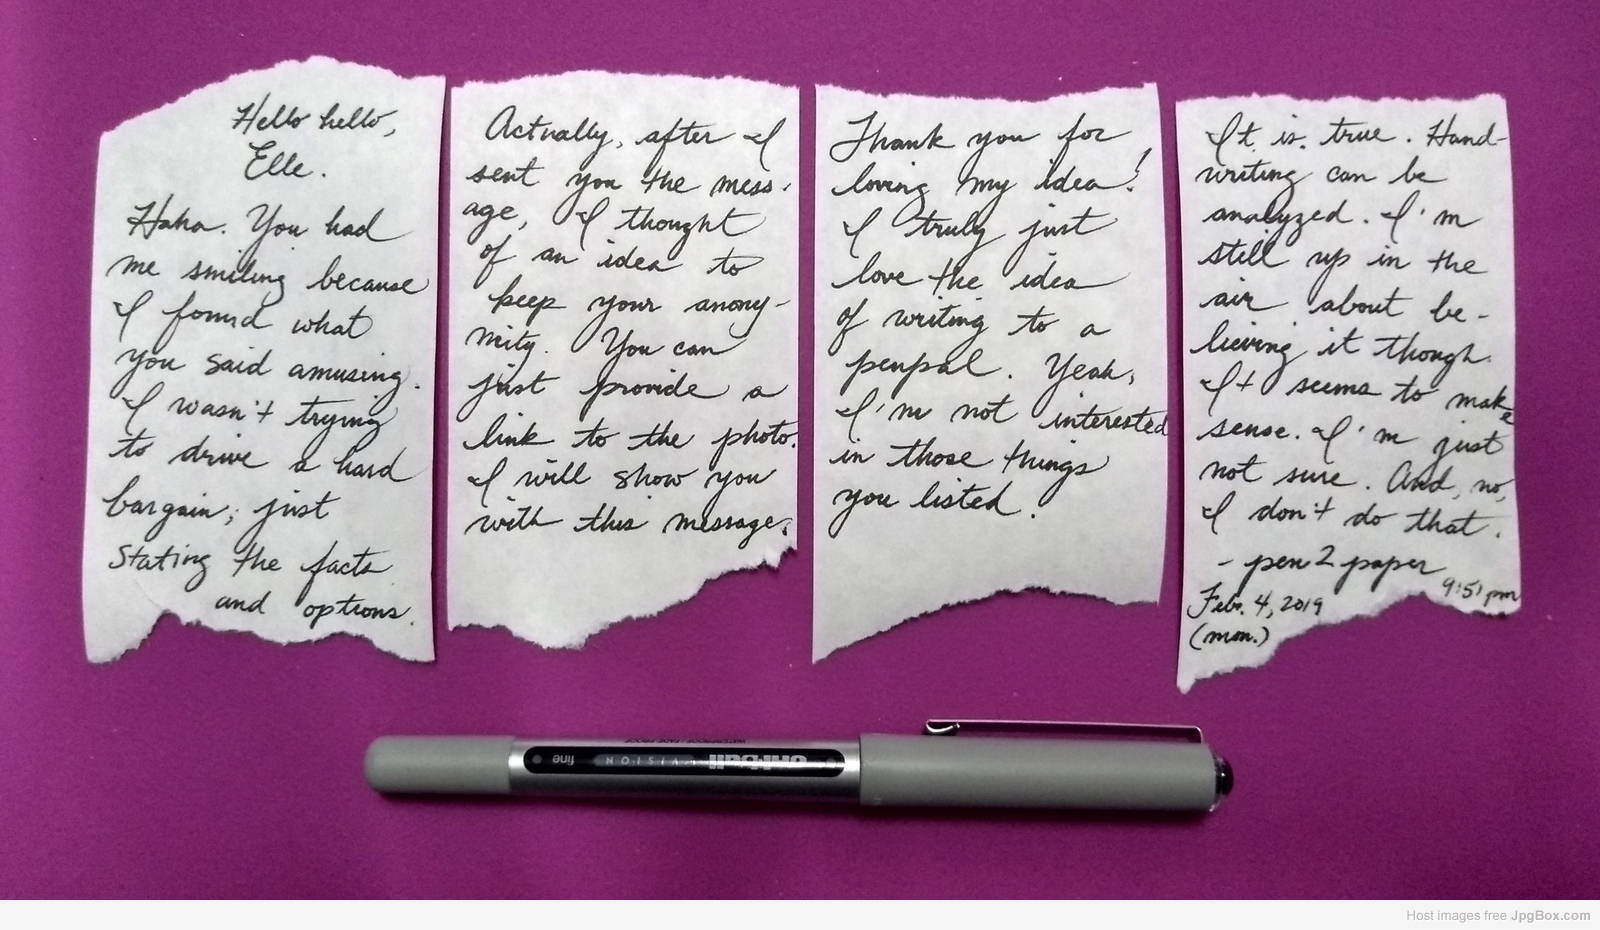 Hello hello,
Elle.
Haha. You had
me smiling because
I found what
you said amusing.
I wasn't trying
to drive a hard
bargain; just
stating the facts
and options.
Actually, after I
sent you the mess-
age, I thought
of an idea to
keep your anony-
mity. You can
just provide a
link to the photo.
I will show you
with this message.
Thank you for
loving my idea!
I truly just
love the idea
of writing to a
penpal. Yeah,
I'm not interested
in those things
you listed.
It is true. Hand-
writing can be
analyzed. I'm
still up in the
air about be-
lieving it though.
It seems to make
sense. I'm just
not sure. And, no,
I don't do that.
- pen2paper
9:51 pm
Feb. 4, 2019
(mon.)
uni-ball VISION fine
Host images free JpgBox.com